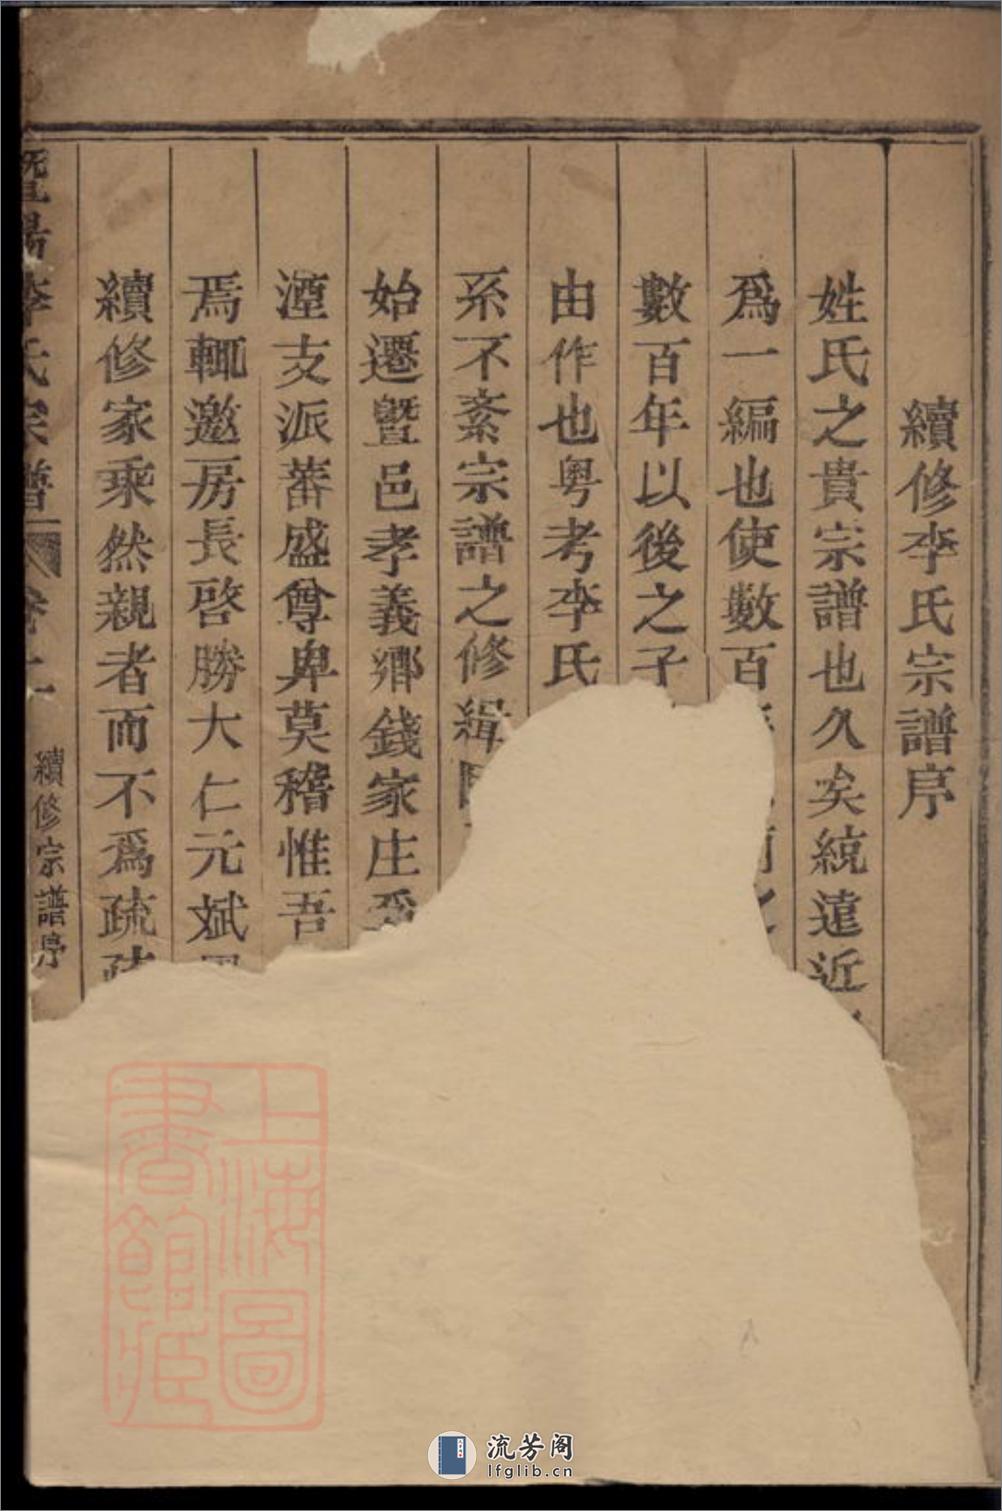 續修李氏宗譜序
姓氏之貴宗譜也久矣統遠近
爲一編也使數百
數百年以後之子
由作也粵考李氏
系不紊宗譜之修緝
始遷暨邑孝義鄉錢家庄
湮支派蕃盛尊卑莫稽惟吾
焉輒邀房長啓勝大仁元斌
續修家乘然親者而不爲疏
暨陽李氏宗譜
續修宗譜序
上海圖書館藏
流芳阁
lfglib.cn